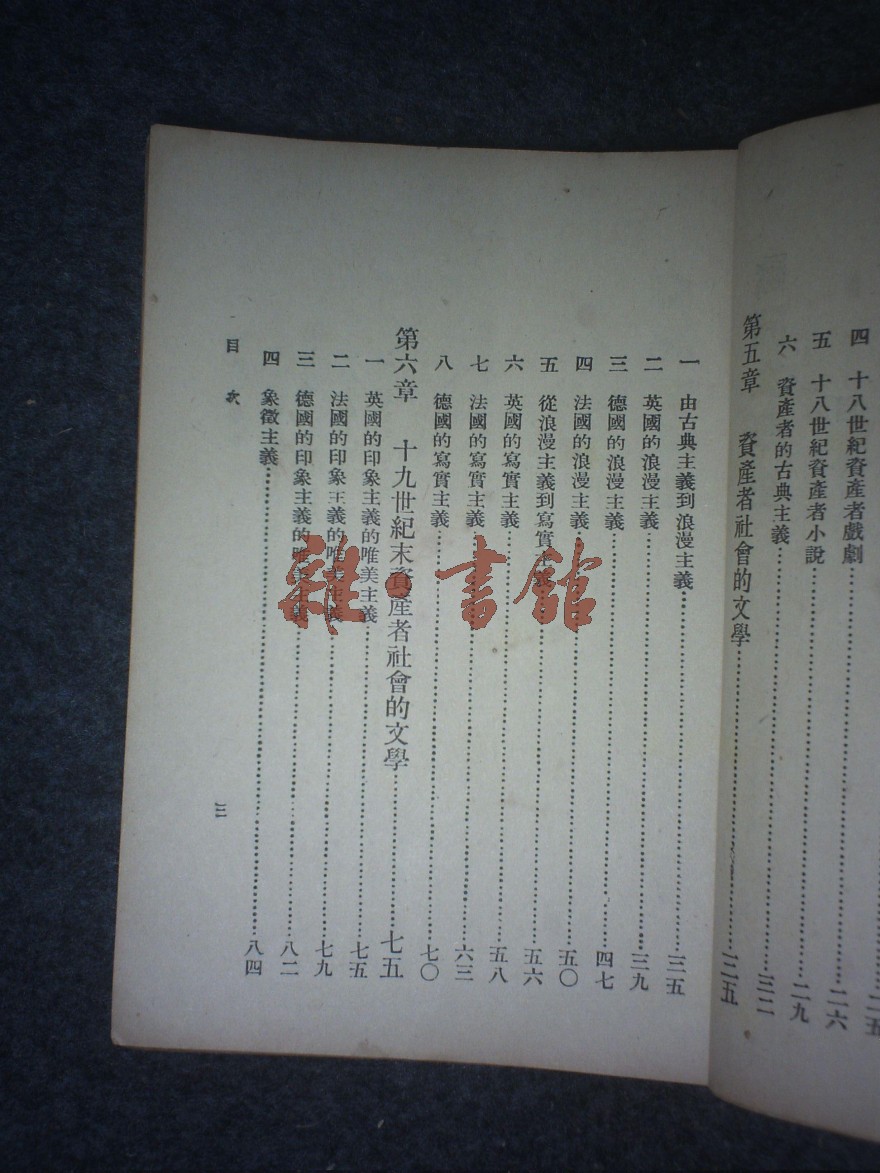 ……二五
四 十八世紀資產者戲劇……二六
五 十八世紀資產者小說……二九
六 資產者的古典主義……三二
第五章 資產者社會的文學……三五
一 由古典主義到浪漫主義……三五
二 英國的浪漫主義……三九
三 德國的浪漫主義……四七
四 法國的浪漫主義……五〇
五 從浪漫主義到寫實主義……五六
六 英國的寫實主義……五八
七 法國的寫實主義……六三
八 德國的寫實主義……七〇
第六章 十九世紀末資產者社會的文學……七五
一 英國的印象主義的唯美主義……七五
二 法國的印象主義的唯美主義……七九
三 德國的印象主義的唯美主義……八二
四 象徵主義……八四
目次 三
雜·書館